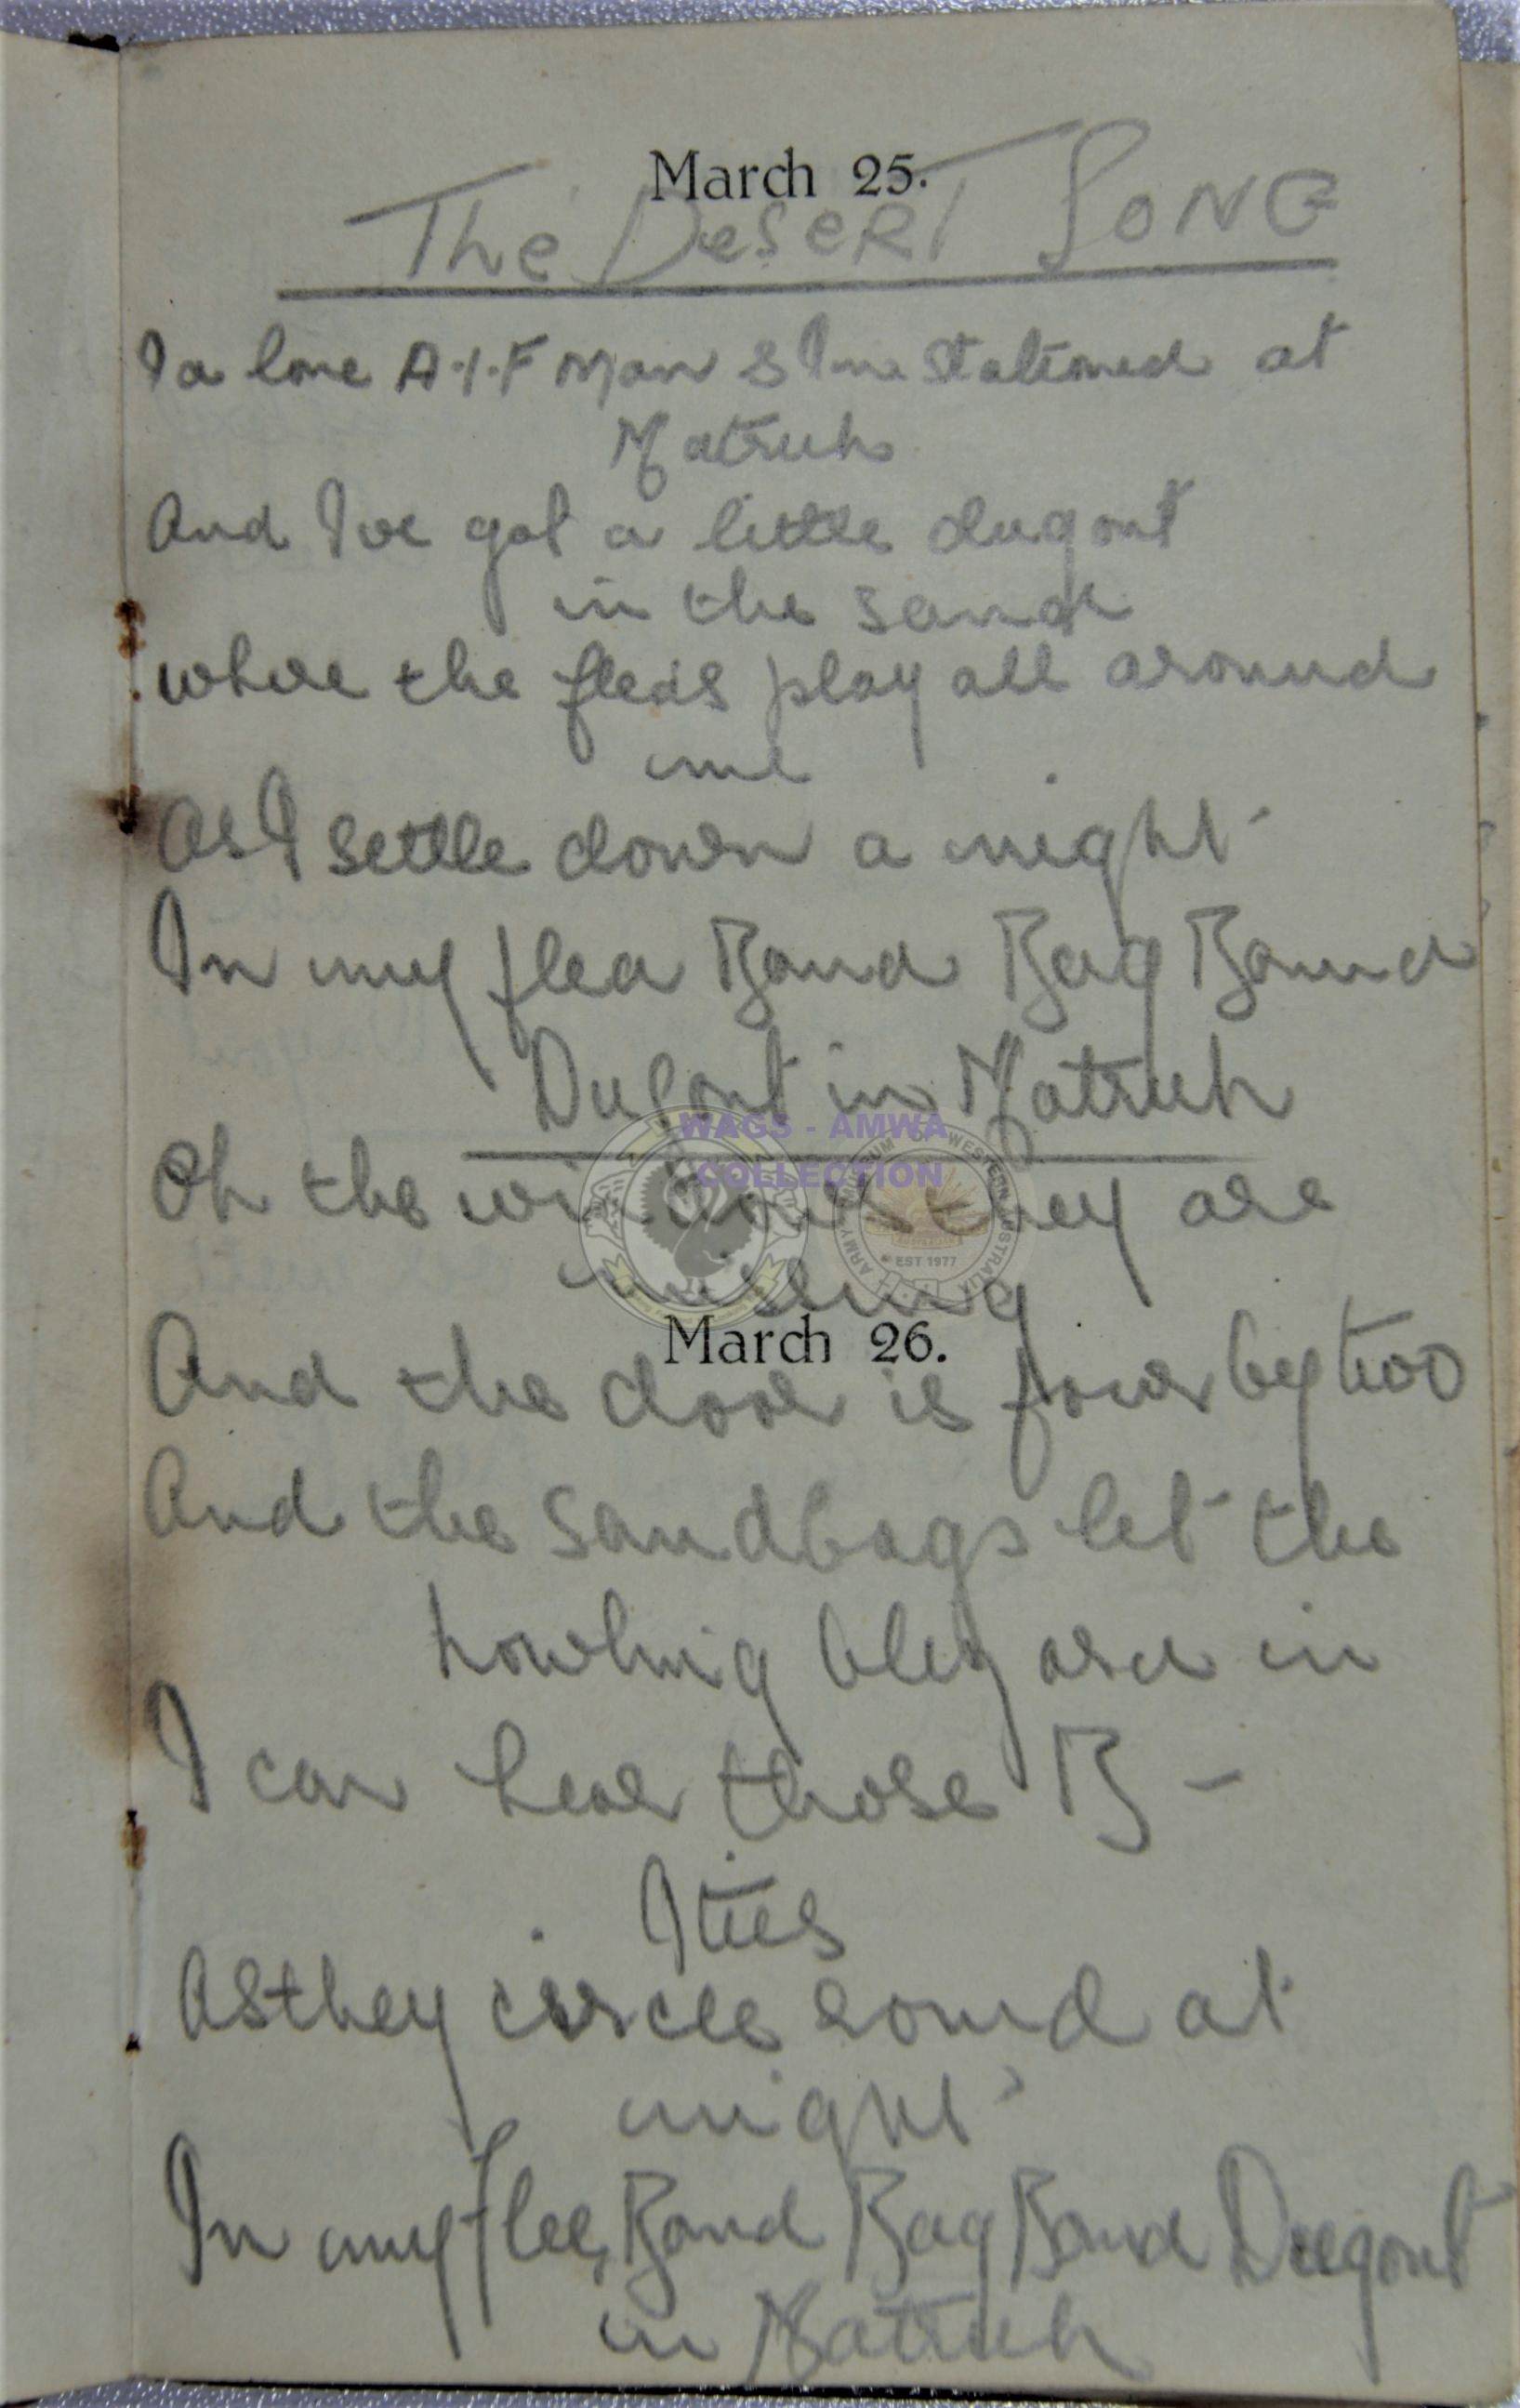 March 25.
The Desert Song
I a lone A.I.F Man & Im Stationed at
Matruh
And Ive got a little dugout
in the sand
where the fleas play all around
me
As I settle down a night
In my flea Bound Bag Bound
Dugout in Matruh
WAGS - AMWA
COLLECTION
Oh the windows they are
ARMY MUSEUM OF WESTERN AUSTRALIA
EST 1977
March 26.
And the door is four by two
And the sandbags let the
howling blizard in
I can hear those B -
Ities
As they circle round at
night
In my flea Bound Bag Bound Dugout
in Matruh